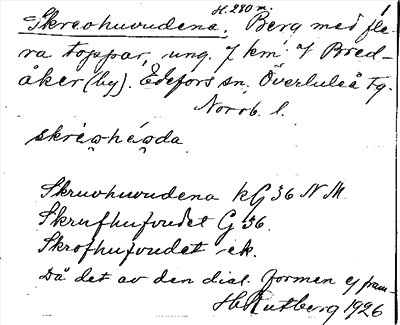 H. 280 m.
Skreohuvudena. Berg med fle-
ra toppar, ung. 7 km n/ Bred-
åker (by). Edefors sn, Överluleå tg.
Norrb. l.
skréọhéọda
Skruvhuvudena kG 36 NM.
Skrufhufvudet G 36.
Skrofhufvudet ek.
Då det av den dial. formen ej fram-
H Rutberg 1926